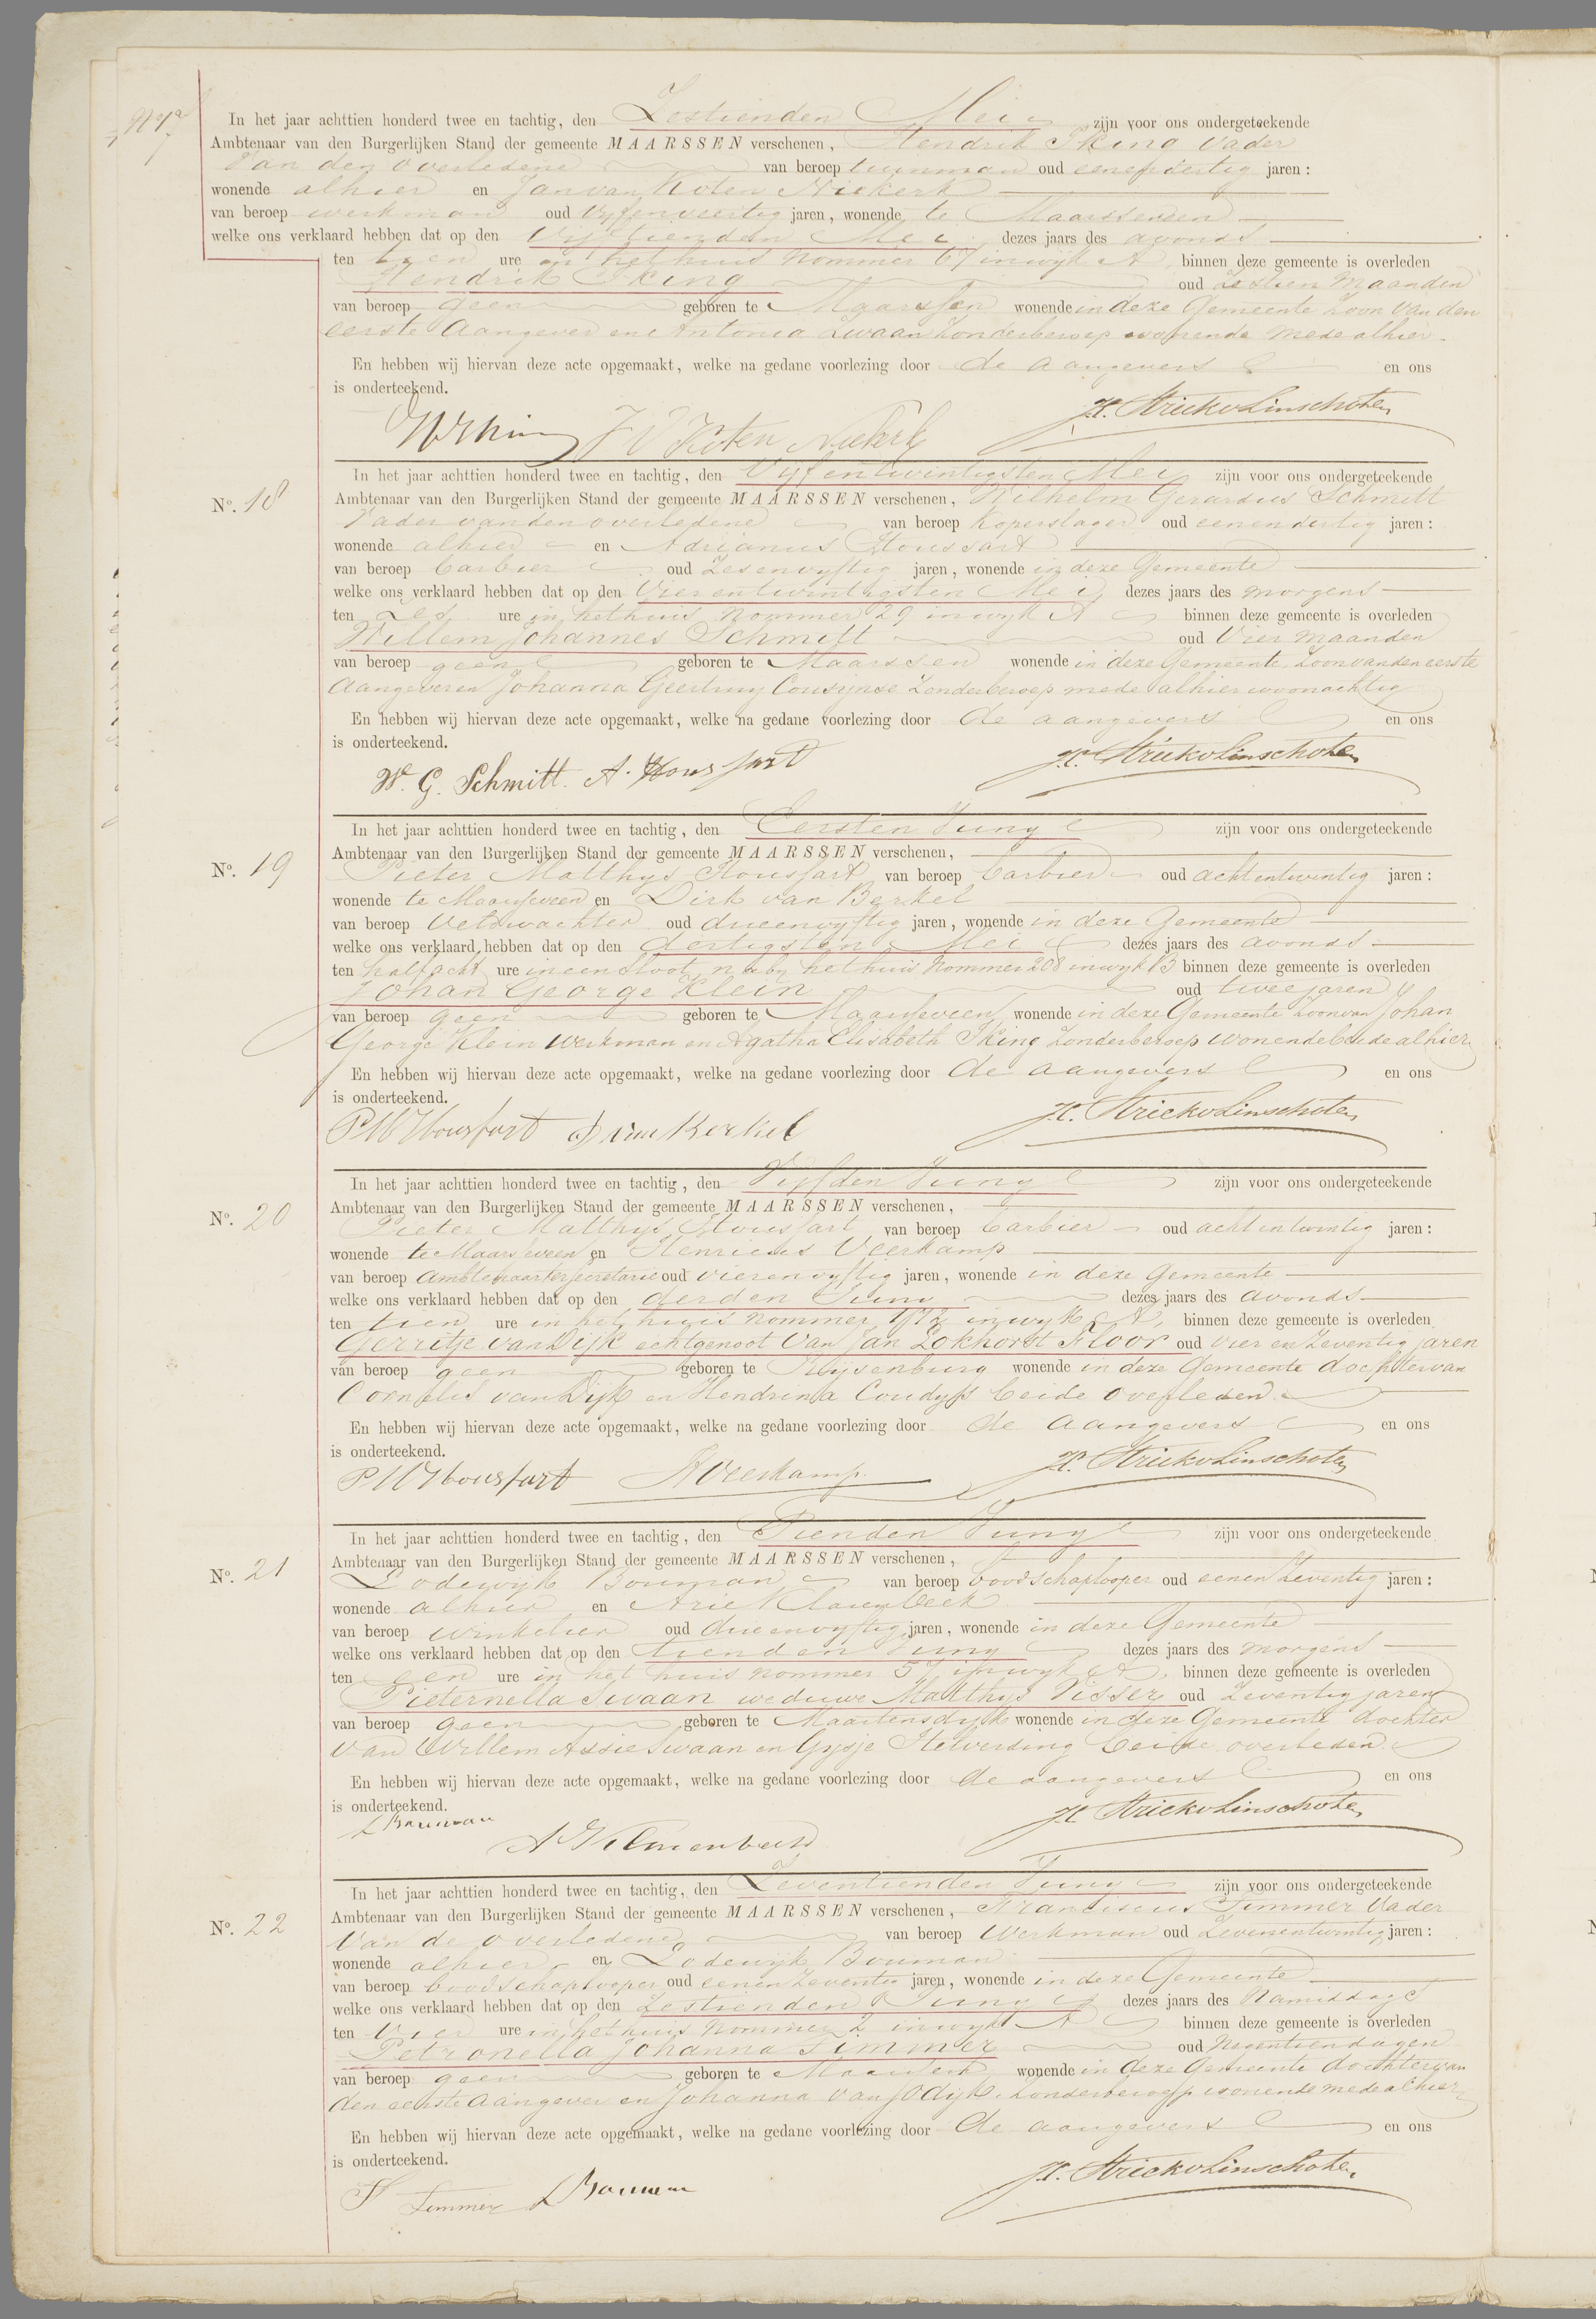 In het jaar achttien honderd twee en tachtig, den Zestienden Mei zijn voor ons ondergeteekende
Ambtenaar van den Burgerlijken Stand der gemeente MAARSSEN verschenen, Hendrik Iking Vader
Van den Overledene van beroep tuinman oud eenendertig jaren:
wonende alhier en Jan van Koten Niekerk
van beroep werkman oud Vijfenveertig jaren, wonende te Maarsseveen
welke ons verklaard hebben dat op den Vijftienden Mei dezes jaars des avonds
ten ure in het huis Nommer 67 in wijk A binnen deze gemeente is overleden
Hendrik Iking oud Zestien Maanden
van beroep geen geboren te Maarssen wonende in deze Gemeente Zoon Van den
eerste Aangever en Antonia Zwaan Zonderberoep wonende mede alhier
En hebben wij hiervan deze acte opgemaakt, welke na gedane voorlezing door de aangevers en ons
is onderteekend.
J V Koten Niekerk H. Strick v Linschoten
In het jaar achttien honderd twee en tachtig, den Vijfentwintigsten Mei zijn voor ons ondergeteekende
No. 18 Ambtenaar van den Burgerlijken Stand der gemeente MAARSSEN verschenen, Wilhelm Gerardus Schmitt
Vader van den overledene van beroep Koperslager oud eenendertig jaren:
wonende alhier en Adrianus Housfart
van beroep barbier oud Zesenvijftig jaren, wonende in deze Gemeente
welke ons verklaard hebben dat op den Vierentwintigsten Mei dezes jaars des morgens
ten Zes ure in het huis Nommer 29 in wijk A binnen deze gemeente is overleden
Willem Johannes Schmitt oud Vier Maanden
van beroep geen geboren te Maarssen wonende in deze Gemeente Zoon van den eerste
Aangever en Johanna Geertruy Cousijnse Zonderberoep mede alhier woonachtig
En hebben wij hiervan deze acte opgemaakt, welke na gedane voorlezing door de aangevers en ons
is onderteekend.
W. G. Schmitt. A. Housfart H. Strick v Linschoten
In het jaar achttien honderd twee en tachtig, den Eersten Juny zijn voor ons ondergeteekende
No. 19 Ambtenaar van den Burgerlijken Stand der gemeente MAARSSEN verschenen,
Pieter Matthys Housfart van beroep barbier oud achtentwintig jaren:
wonende te Maarsseveen en Dirk van Berkel
van beroep Veldwachter oud drieenvijftig jaren, wonende in deze Gemeente
welke ons verklaard hebben dat op den dertigsten Mei dezes jaars des avonds
ten half acht ure in een Sloot naby het huis Nommer 208 in wijk B binnen deze gemeente is overleden
Johan George Klein oud twee jaren
van beroep geen geboren te Maarsseveen wonende in deze Gemeente Zoon van Johan
George Klein Werkman en Agatha Elisabeth Iking Zonderberoep wonende beide alhier
En hebben wij hiervan deze acte opgemaakt, welke na gedane voorlezing door de aangevers en ons
is onderteekend.
P M Housfart D van Berkel H. Strick v Linschoten
In het jaar achttien honderd twee en tachtig, den Vijfden Juny zijn voor ons ondergeteekende
No. 20 Ambtenaar van den Burgerlijken Stand der gemeente MAARSSEN verschenen,
Pieter Matthys Housfart van beroep barbier oud achtentwintig jaren:
wonende te Maarsseveen en Henricus Veerkamp
van beroep Ambtenaar ter Secretarie oud vierenvijftig jaren, wonende in deze Gemeente
welke ons verklaard hebben dat op den derden Juny dezes jaars des avonds
ten tien ure in het huis Nommer in wijk A, binnen deze gemeente is overleden
Gerritje van Dijk echtgenoot Van Jan Lokhorst Floor oud vier en Zeventig jaren
van beroep geen geboren te Rijsenburg wonende in deze Gemeente dochter van
Cornelis van Dijk en Hendrina Coudijs beide Overleden
En hebben wij hiervan deze acte opgemaakt, welke na gedane voorlezing door de aangevers en ons
is onderteekend.
P M Housfart H Veerkamp H. Strick v Linschoten
In het jaar achttien honderd twee en tachtig, den Tienden Juny zijn voor ons ondergeteekende
No. 21 Ambtenaar van den Burgerlijken Stand der gemeente MAARSSEN verschenen,
Lodewijk Bouman van beroep boodschaplooper oud eenenZeventig jaren:
wonende alhier en Arie Klarenbeek
van beroep winkelier oud drieenvijftig jaren, wonende in deze Gemeente
welke ons verklaard hebben dat op den tienden Juny dezes jaars des morgens
ten een ure in het huis nommer 57 in wijk A, binnen deze gemeente is overleden
Pieternella Swaan weduwe Matthys Visser oud Zeventig jaren
van beroep geen geboren te Maartensdijk wonende in deze Gemeente dochter
van Willem Swaan en Gijsje Helverding beide overleden
En hebben wij hiervan deze acte opgemaakt, welke na gedane voorlezing door de aangevers en ons
is onderteekend.
L Bouman A Klarenbeek H. Strick v Linschoten
In het jaar achttien honderd twee en tachtig, den Zeventienden Juny zijn voor ons ondergeteekende
No. 22 Ambtenaar van den Burgerlijken Stand der gemeente MAARSSEN verschenen, Franciscus Timmer Vader
Van de Overledene van beroep Werkman oud Zevenentwintig jaren:
wonende alhier en Lodewijk Bouman
van beroep boodschaplooper oud eenenZeventig jaren, wonende in deze Gemeente
welke ons verklaard hebben dat op den Zestienden Juny dezes jaars des Namiddags
ten Vier ure in het huis Nommer 2 in wijk A binnen deze gemeente is overleden
Petronella Johanna Timmer oud Negentien dagen
van beroep geen geboren te Maarssen wonende in deze Gemeente dochter van
den eerste Aangever en Johanna van Odijk, Zonderberoep wonende mede alhier
En hebben wij hiervan deze acte opgemaakt, welke na gedane voorlezing door de aangevers en ons
is onderteekend.
F Timmer L Bouman H. Strick v Linschoten